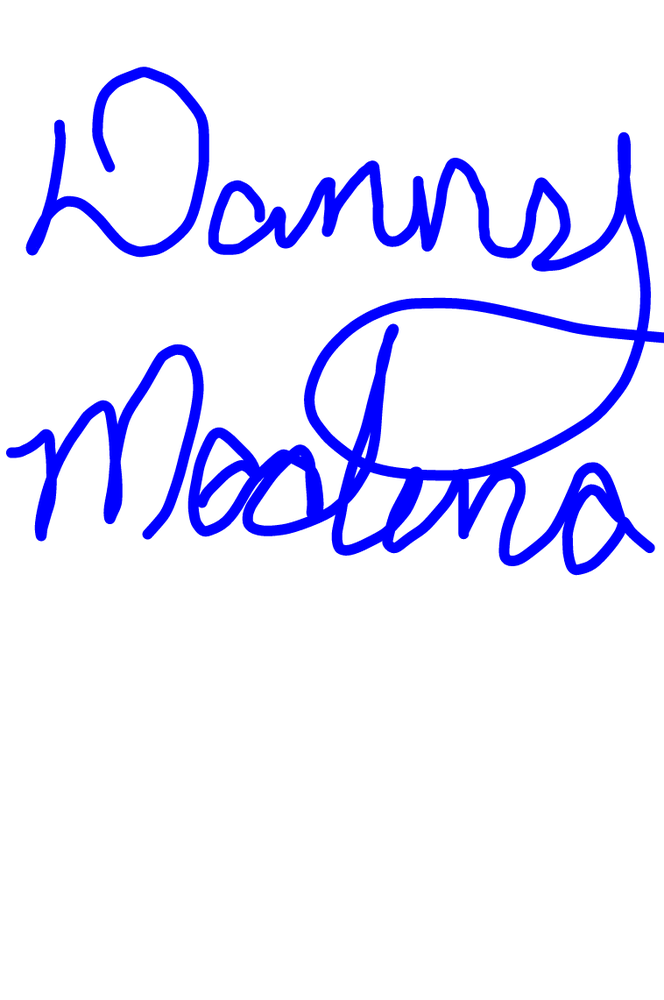 Danny
Modena